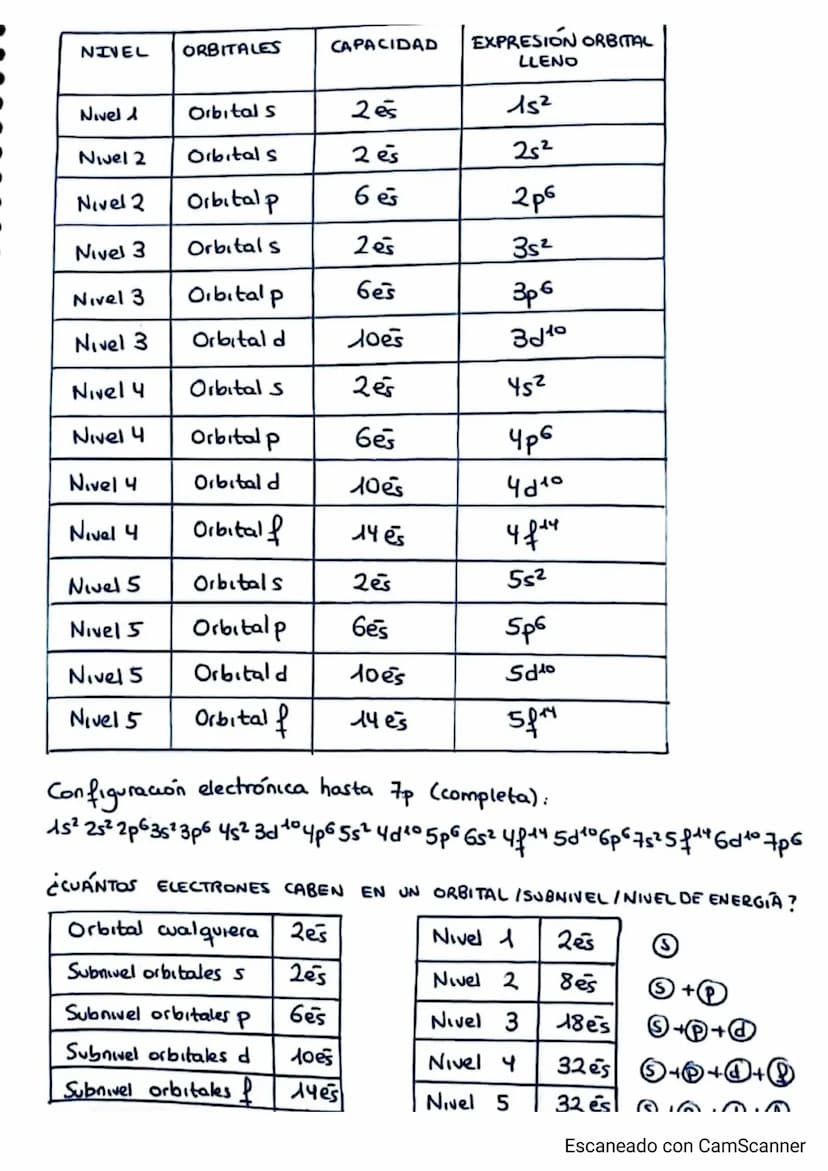 NIVEL ORBITALES CAPACIDAD EXPRESIÓN ORBITAL LLENO
Nivel 1 Orbital s 2 ēs 1s²
Nivel 2 Orbital s 2 ēs 2s²
Nivel 2 Orbital p 6 ēs 2p⁶
Nivel 3 Orbital s 2ēs 3s²
Nivel 3 Orbital p 6ēs 3p⁶
Nivel 3 Orbital d 10ēs 3d¹⁰
Nivel 4 Orbital s 2ēs 4s²
Nivel 4 Orbital p 6ēs 4p⁶
Nivel 4 Orbital d 10ēs 4d¹⁰
Nivel 4 Orbital f 14 ēs 4f¹⁴
Nivel 5 Orbital s 2ēs 5s²
Nivel 5 Orbital p 6ēs 5p⁶
Nivel 5 Orbital d 10ēs 5d¹⁰
Nivel 5 Orbital f 14 ēs 5f¹⁴
Configuración electrónica hasta 7p (completa):
1s² 2s² 2p⁶ 3s² 3p⁶ 4s² 3d¹⁰ 4p⁶ 5s² 4d¹⁰ 5p⁶ 6s² 4f¹⁴ 5d¹⁰ 6p⁶ 7s² 5f¹⁴ 6d¹⁰ 7p⁶
¿CUÁNTOS ELECTRONES CABEN EN UN ORBITAL / SUBNIVEL / NIVEL DE ENERGÍA?
Orbital cualquiera 2ēs
Subnivel orbitales s 2ēs
Subnivel orbitales p 6ēs
Subnivel orbitales d 10ēs
Subnivel orbitales f 14ēs
Nivel 1 2ēs s
Nivel 2 8ēs s + p
Nivel 3 18ēs s + p + d
Nivel 4 32ēs s + p + d + f
Nivel 5 32 ēs
Escaneado con CamScanner